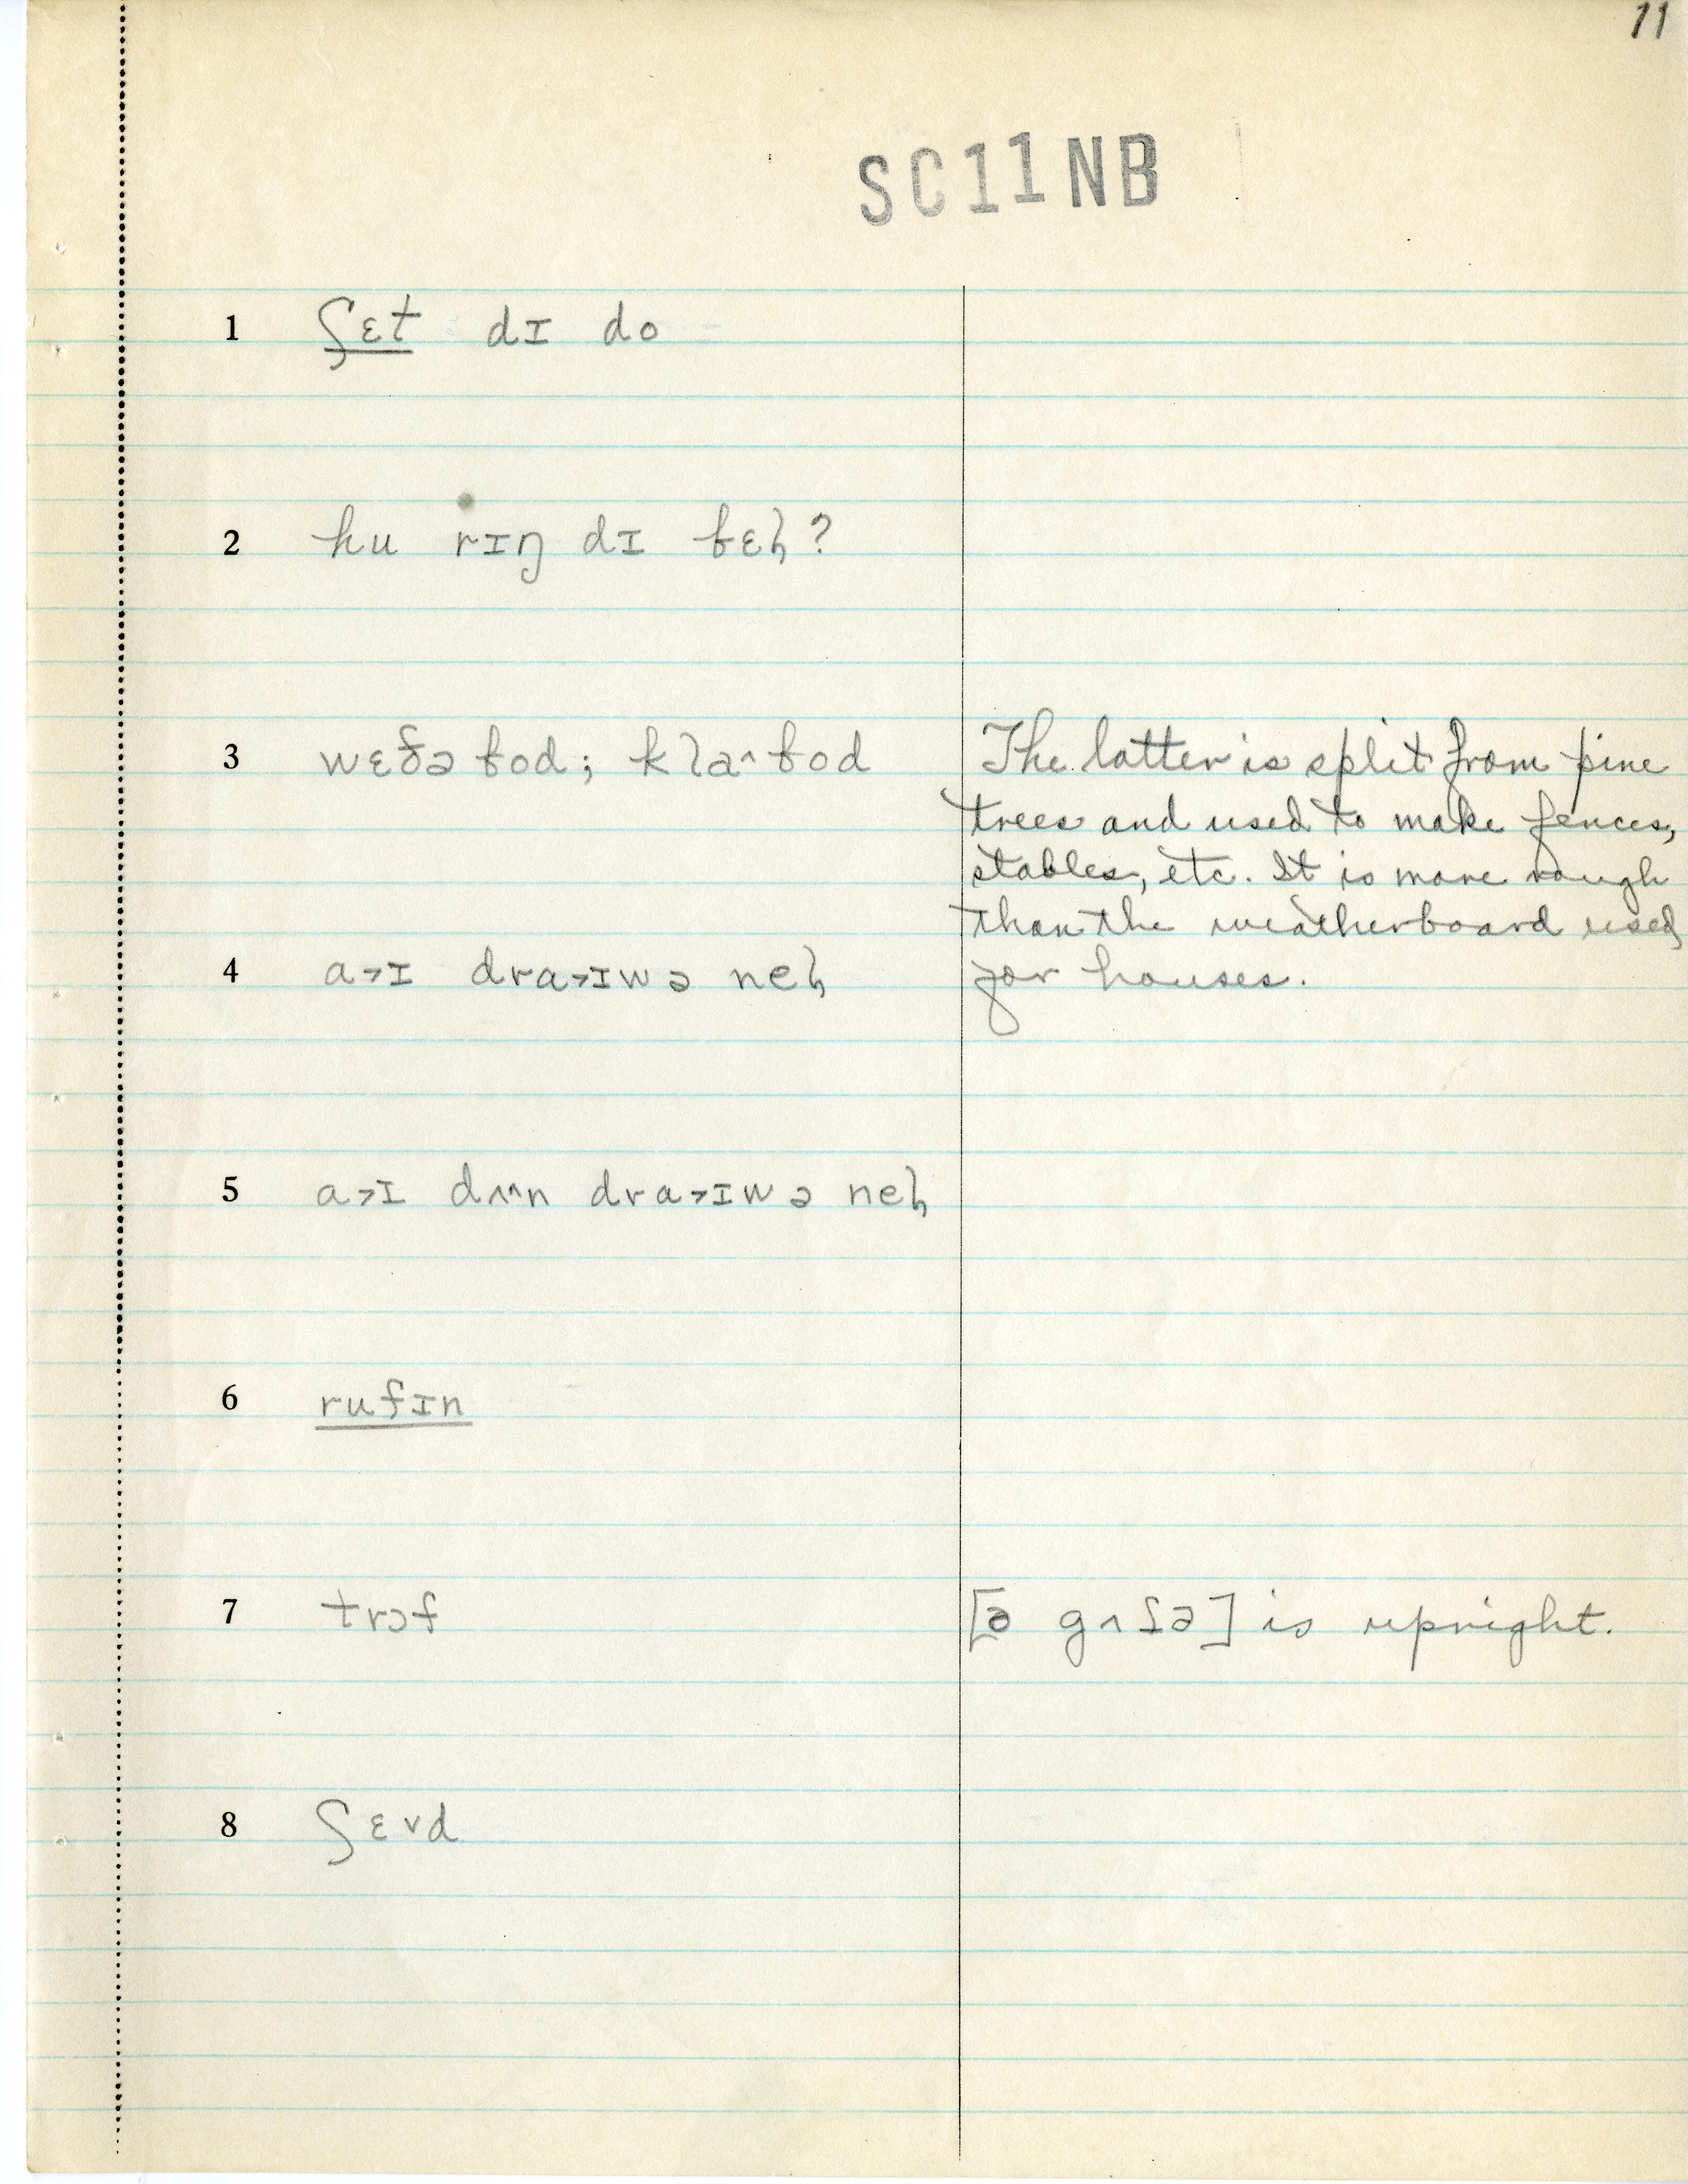 11
SC11NB
1 ʃɛt dɪ do
2 hu rɪŋ dɪ ɓɛɫ?
3 wɛðə ɓod; kla^ɓod
The latter is split from pine
trees and used to make fences,
stables, etc. It is more rough
than the weatherboard used
for houses.
4 a>ɪ dra>ɪwə neɫ
5 a>ɪ dʌ^n dra>ɪwə neɫ
6 rufɪn
7 trɔf
[ə gʌʃə] is upright.
8 ʃɛvd